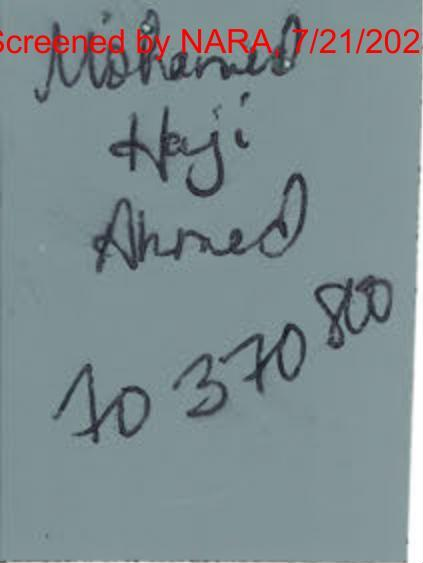 Screened by NARA, 7/21/202
Mohamed
Haji
Ahmed
70 370 800